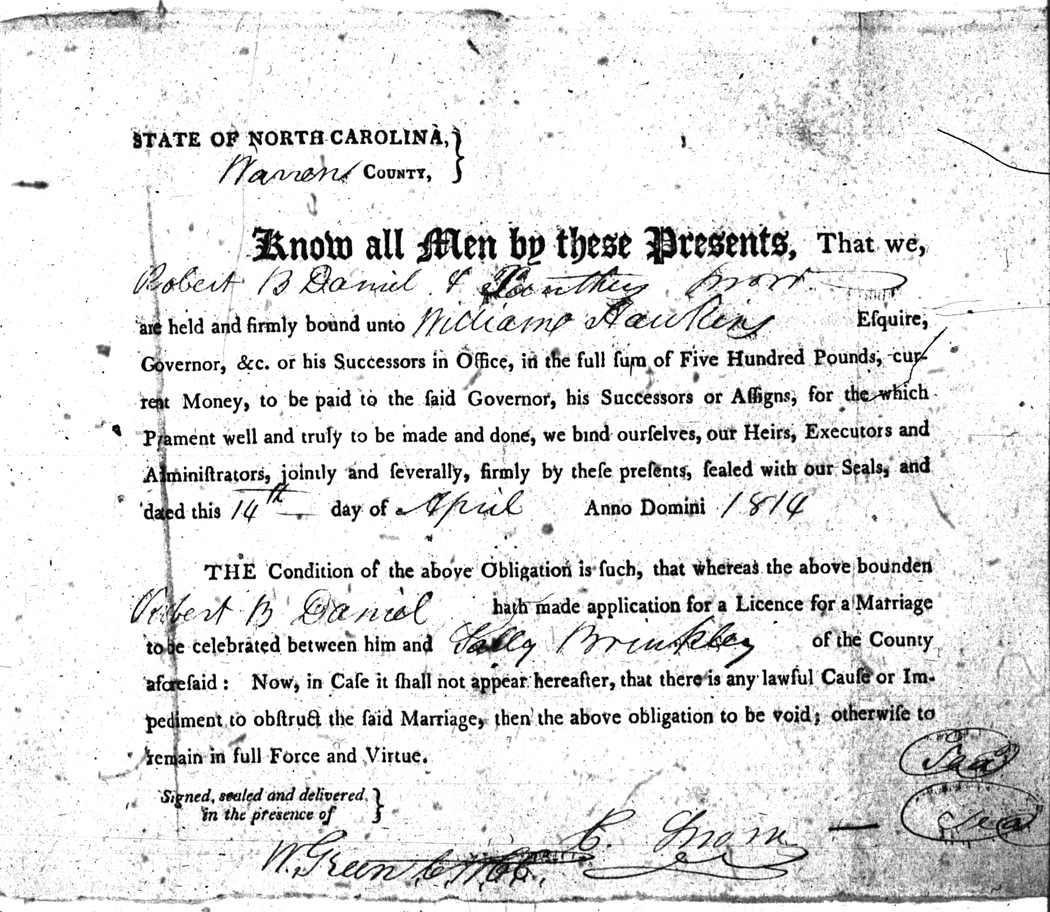 STATE OF NORTH CAROLINA,
Warren COUNTY,
Know all Men by these Presents, That we,
Robert B Daniel & Snow
are held and firmly bound unto William Hawkins Eſquire,
Governor, &c. or his Successors in Office, in the full ſum of Five Hundred Pounds, cur-
rent Money, to be paid to the ſaid Governor, his Successors or Aſſigns, for the which
Payment well and truly to be made and done, we bind ourſelves, our Heirs, Executors and
Adminiſtrators, jointly and ſeverally, firmly by theſe preſents, ſealed with our Seals, and
dated this 14th day of April Anno Domini 1814
THE Condition of the above Obligation is ſuch, that whereas the above bounden
Robert B Daniel hath made application for a Licence for a Marriage
to be celebrated between him and Sally Brinkley of the County
aforeſaid: Now, in Caſe it ſhall not appear hereafter, that there is any lawful Cauſe or Im-
pediment to obſtruct the ſaid Marriage, then the above obligation to be void; otherwiſe to
remain in full Force and Virtue.
Signed, sealed and delivered,
in the presence of
Seal
Seal
Snow
W. Green